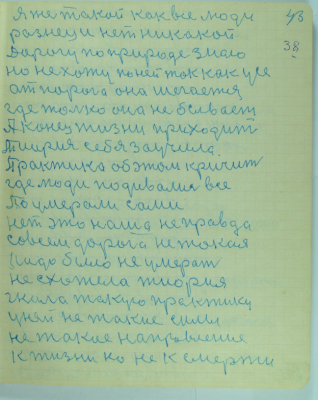 Я же такой как все люди 43
разнеци нет никакой 38
Дорогу по природе знаю
но не хожу по ней так как усе
от порога она шегается
где толко она не бывает
А конец жизни приходит
Тиория себя заучила.
Практика об этом кричит
где люди подивалис все
Поумерали сами
нет это наша неправда
совсем дорога не такая
Надо било не умерат
не схотела тиория
такую практику
у ней не такие сили
не такое направление
к жизни но не к смерти